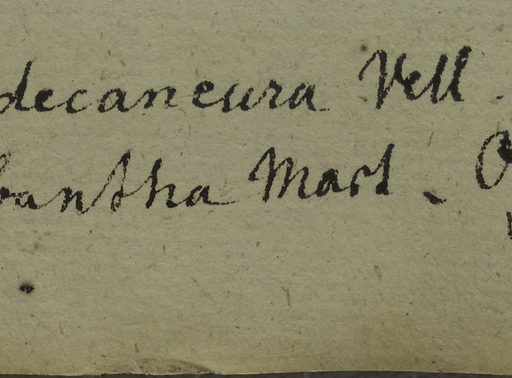 decaneura Vell.
bantha Mart.